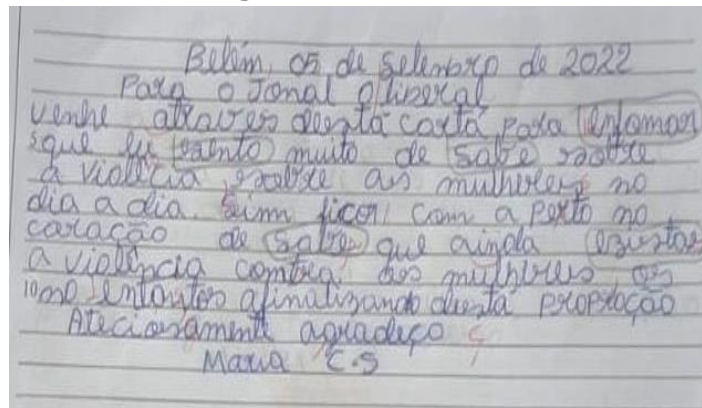 Belém, 05 de Selembro de 2022
Para o Jonal o liberal
venhe atraves desta carta para enfomar
que eu sento muito de sabe sobre
a violêcia sobre as mulheres no
dia a dia. Simm ficor com a perto no
caração de sabe que ainda
a violência combra as mulheres os
10 no entantos afinalizando desta
Ateciosamente agradeço
Maria C.S